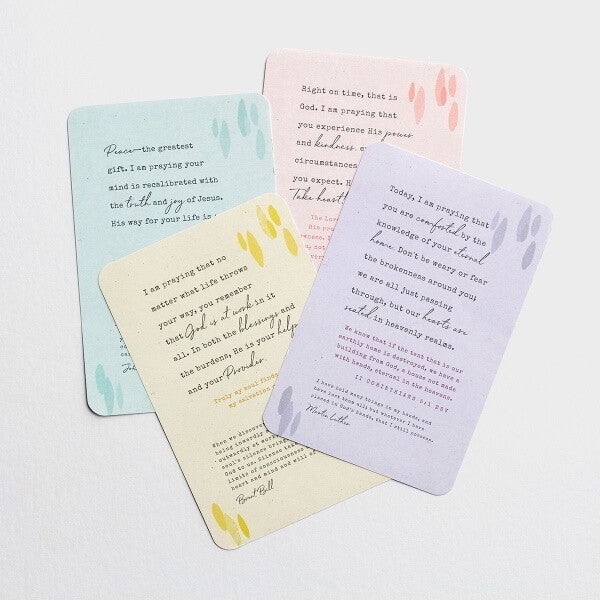 Peace—the greatest
gift. I am praying your
mind is recalibrated with
the truth and joy of Jesus.
His way for your life is
Right on time, that is
God. I am praying that
you experience His power
and kindness
circumstances
you expect.
Take heart
The Lord
His
not
I am praying that no
matter what life throws
your way, you remember
that God is at work in it
all. In both the blessings and
the burdens, He is your help
and your Provider.
Truly my soul finds
my salvation
When we discover
being inwardly
outwardly at work
soul's silence brings
God to us. Silence
limits of consciousness
heart and mind and will
Brent Bill
Today, I am praying that
you are comforted by the
knowledge of your eternal
home. Don't be weary or fear
the brokenness around you;
we are all just passing
through, but our hearts are
seated in heavenly realms.
We know that if the tent that is our
earthly home is destroyed, we have a
building from God, a house not made
with hands, eternal in the heavens.
II CORINTHIANS 5:1 ESV
I have held many things in my hands, and
have lost them all; but whatever I have
placed in God's hands, that I still possess.
Martin Luther